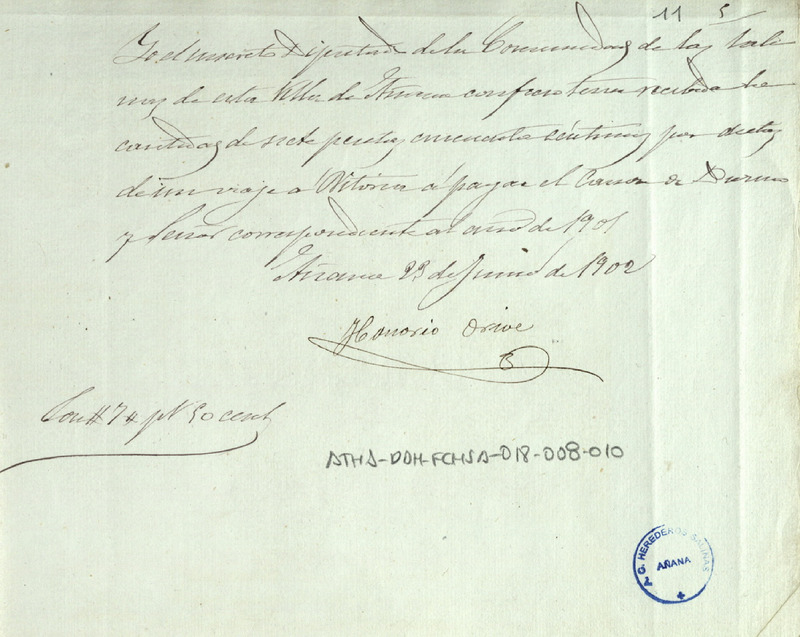 11 5
Yo el infrascrito Diputado de la Comunidad de las Sali
nas de esta Villa de Añana confieso tener recibido la
cantidad de siete pesetas cincuenta céntimos por dietas
de un viaje a Vitoria á pagar el Canon de
y correspondiente al año de 1901
Añana 23 de Junio de 1902
Honorio Orive
Son # 7 # pts 50 cent
ATHA-DAH-FCHSA-018-008-010
G. HEREDEROS SALINAS
AÑANA